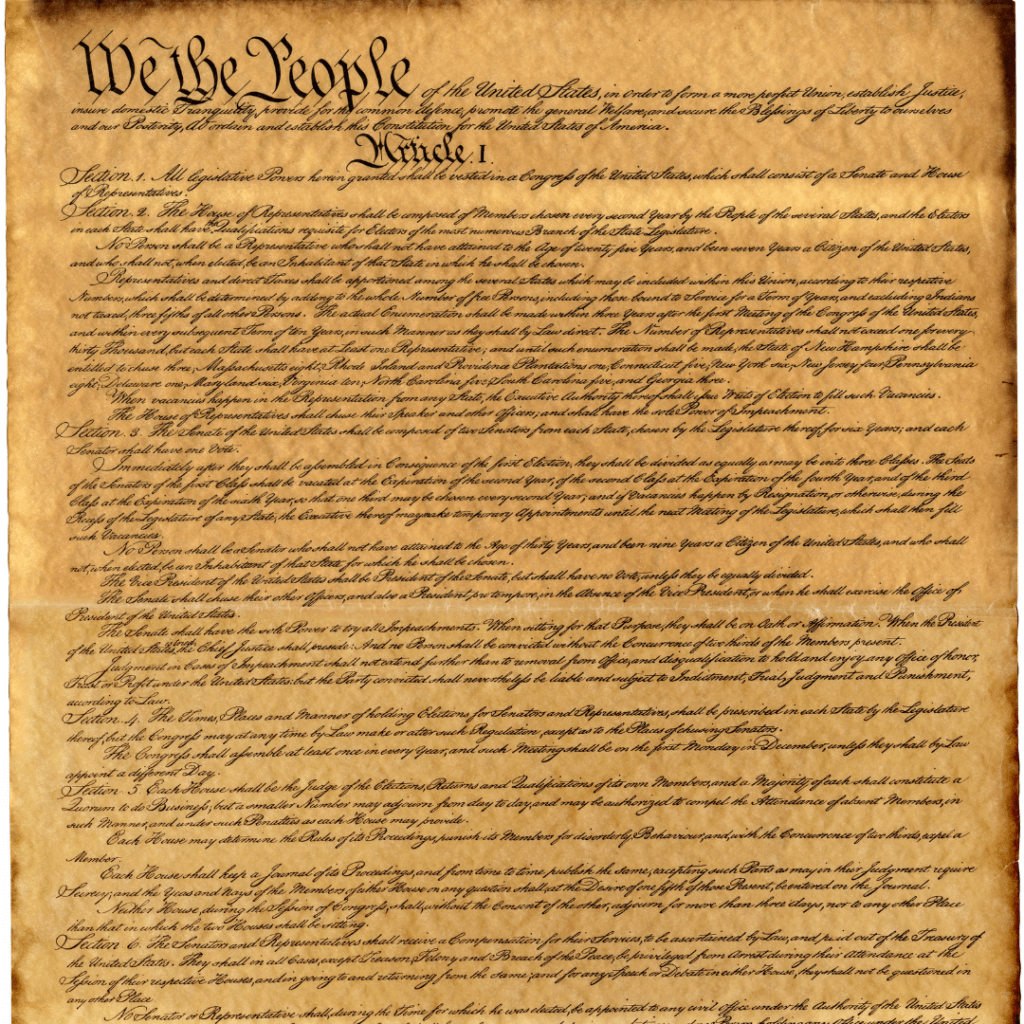 We the People of the United States, in order to form a more perfect Union, establish Justice,
insure domestic Tranquility, provide for the common defence, promote the general Welfare, and secure the Blessings of Liberty to ourselves
and our Posterity, do ordain and establish this Constitution for the United States of America.
Article I.
Section 1. All legislative Powers herein granted shall be vested in a Congress of the United States, which shall consist of a Senate and House
of Representatives.
Section 2. The House of Representatives shall be composed of Members chosen every second Year by the People of the several States, and the Electors
in each State shall have the Qualifications requisite for Electors of the most numerous Branch of the State Legislature.
No Person shall be a Representative who shall not have attained to the Age of twenty five Years, and been seven Years a Citizen of the United States,
and who shall not, when elected, be an Inhabitant of that State in which he shall be chosen.
Representatives and direct Taxes shall be apportioned among the several States which may be included within this Union, according to their respective
Numbers, which shall be determined by adding to the whole Number of free Persons, including those bound to Service for a Term of Years, and excluding Indians
not taxed, three fifths of all other Persons. The actual Enumeration shall be made within three Years after the first Meeting of the Congress of the United States,
and within every subsequent Term of ten Years, in such Manner as they shall by Law direct. The Number of Representatives shall not exceed one for every
thirty Thousand, but each State shall have at Least one Representative; and until such enumeration shall be made, the State of New Hampshire shall be
entitled to chuse three, Massachusetts eight, Rhode Island and Providence Plantations one, Connecticut five, New York six, New Jersey four, Pennsylvania
eight, Delaware one, Maryland six, Virginia ten, North Carolina five, South Carolina five, and Georgia three.
When vacancies happen in the Representation from any State, the Executive Authority thereof shall issue Writs of Election to fill such Vacancies.
The House of Representatives shall chuse their Speaker and other Officers; and shall have the sole Power of Impeachment.
Section 3. The Senate of the United States shall be composed of two Senators from each State, chosen by the Legislature thereof, for six Years; and each
Senator shall have one Vote.
Immediately after they shall be assembled in Consequence of the first Election, they shall be divided as equally as may be into three Classes. The Seats
of the Senators of the first Class shall be vacated at the Expiration of the second Year, of the second Class at the Expiration of the fourth Year, and of the third
Class at the Expiration of the sixth Year, so that one third may be chosen every second Year; and if Vacancies happen by Resignation, or otherwise, during the
Recess of the Legislature of any State, the Executive thereof may make temporary Appointments until the next Meeting of the Legislature, which shall then fill
such Vacancies.
No Person shall be a Senator who shall not have attained to the Age of thirty Years, and been nine Years a Citizen of the United States, and who shall
not, when elected, be an Inhabitant of that State for which he shall be chosen.
The Vice President of the United States shall be President of the Senate, but shall have no Vote, unless they be equally divided.
The Senate shall chuse their other Officers, and also a President pro tempore, in the Absence of the Vice President, or when he shall exercise the Office of
President of the United States.
The Senate shall have the sole Power to try all Impeachments. When sitting for that Purpose, they shall be on Oath or Affirmation. When the President
of the United States is tried, the Chief Justice shall preside: And no Person shall be convicted without the Concurrence of two thirds of the Members present.
Judgment in Cases of Impeachment shall not extend further than to removal from Office, and disqualification to hold and enjoy any Office of honor,
Trust or Profit under the United States: but the Party convicted shall nevertheless be liable and subject to Indictment, Trial, Judgment and Punishment,
according to Law.
Section 4. The Times, Places and Manner of holding Elections for Senators and Representatives, shall be prescribed in each State by the Legislature
thereof, but the Congress may at any time by Law make or alter such Regulation, except as to the Places of chusing Senators.
The Congress shall assemble at least once in every Year, and such Meeting shall be on the first Monday in December, unless they shall by Law
appoint a different Day.
Section 5 Each House shall be the Judge of the Elections, Returns and Qualifications of its own Members, and a Majority of each shall constitute a
Quorum to do Business; but a smaller Number may adjourn from day to day, and may be authorized to compel the Attendance of absent Members, in
such Manner, and under such Penalties as each House may provide.
Each House may determine the Rules of its Proceedings, punish its Members for disorderly Behaviour, and, with the Concurrence of two thirds, expel a
Member.
Each House shall keep a Journal of its Proceedings, and from time to time publish the same, excepting such Parts as may in their Judgment require
Secrecy; and the Yeas and Nays of the Members of either House on any question shall, at the Desire of one fifth of those Present, be entered on the Journal.
Neither House, during the Session of Congress, shall, without the Consent of the other, adjourn for more than three days, nor to any other Place
than that in which the two Houses shall be sitting.
Section 6. The Senators and Representatives shall receive a Compensation for their Services, to be ascertained by Law, and paid out of the Treasury of
the United States. They shall in all Cases, except Treason, Felony and Breach of the Peace, be privileged from Arrest during their Attendance at the
Session of their respective Houses, and in going to and returning from the same; and for any Speech or Debate in either House, they shall not be questioned in
any other Place
No Senator or Representative shall, during the Time for which he was elected, be appointed to any civil Office under the Authority of the United States